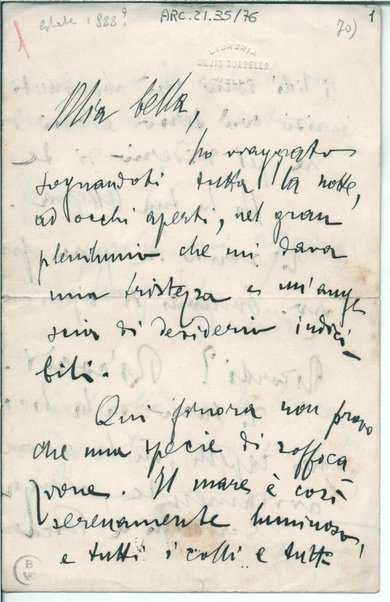 estate 1888?
ARC.21.35/76
1
70)
1
LIBRERIA
Mia bella,
ho viaggiato
sognandoti tutta la notte,
ad occhi aperti, nel gran
plenilunio che mi dava
una tristezza e un'ango
scia di desiderio indici
bili.
Qui finora non provo
che una specie di soffoca
zione. Il mare è così
serenamente luminoso,
e tutti i colli e tutte
B